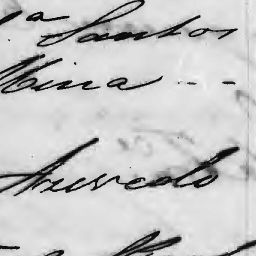 ª Santos
Mina - -
Azevedo